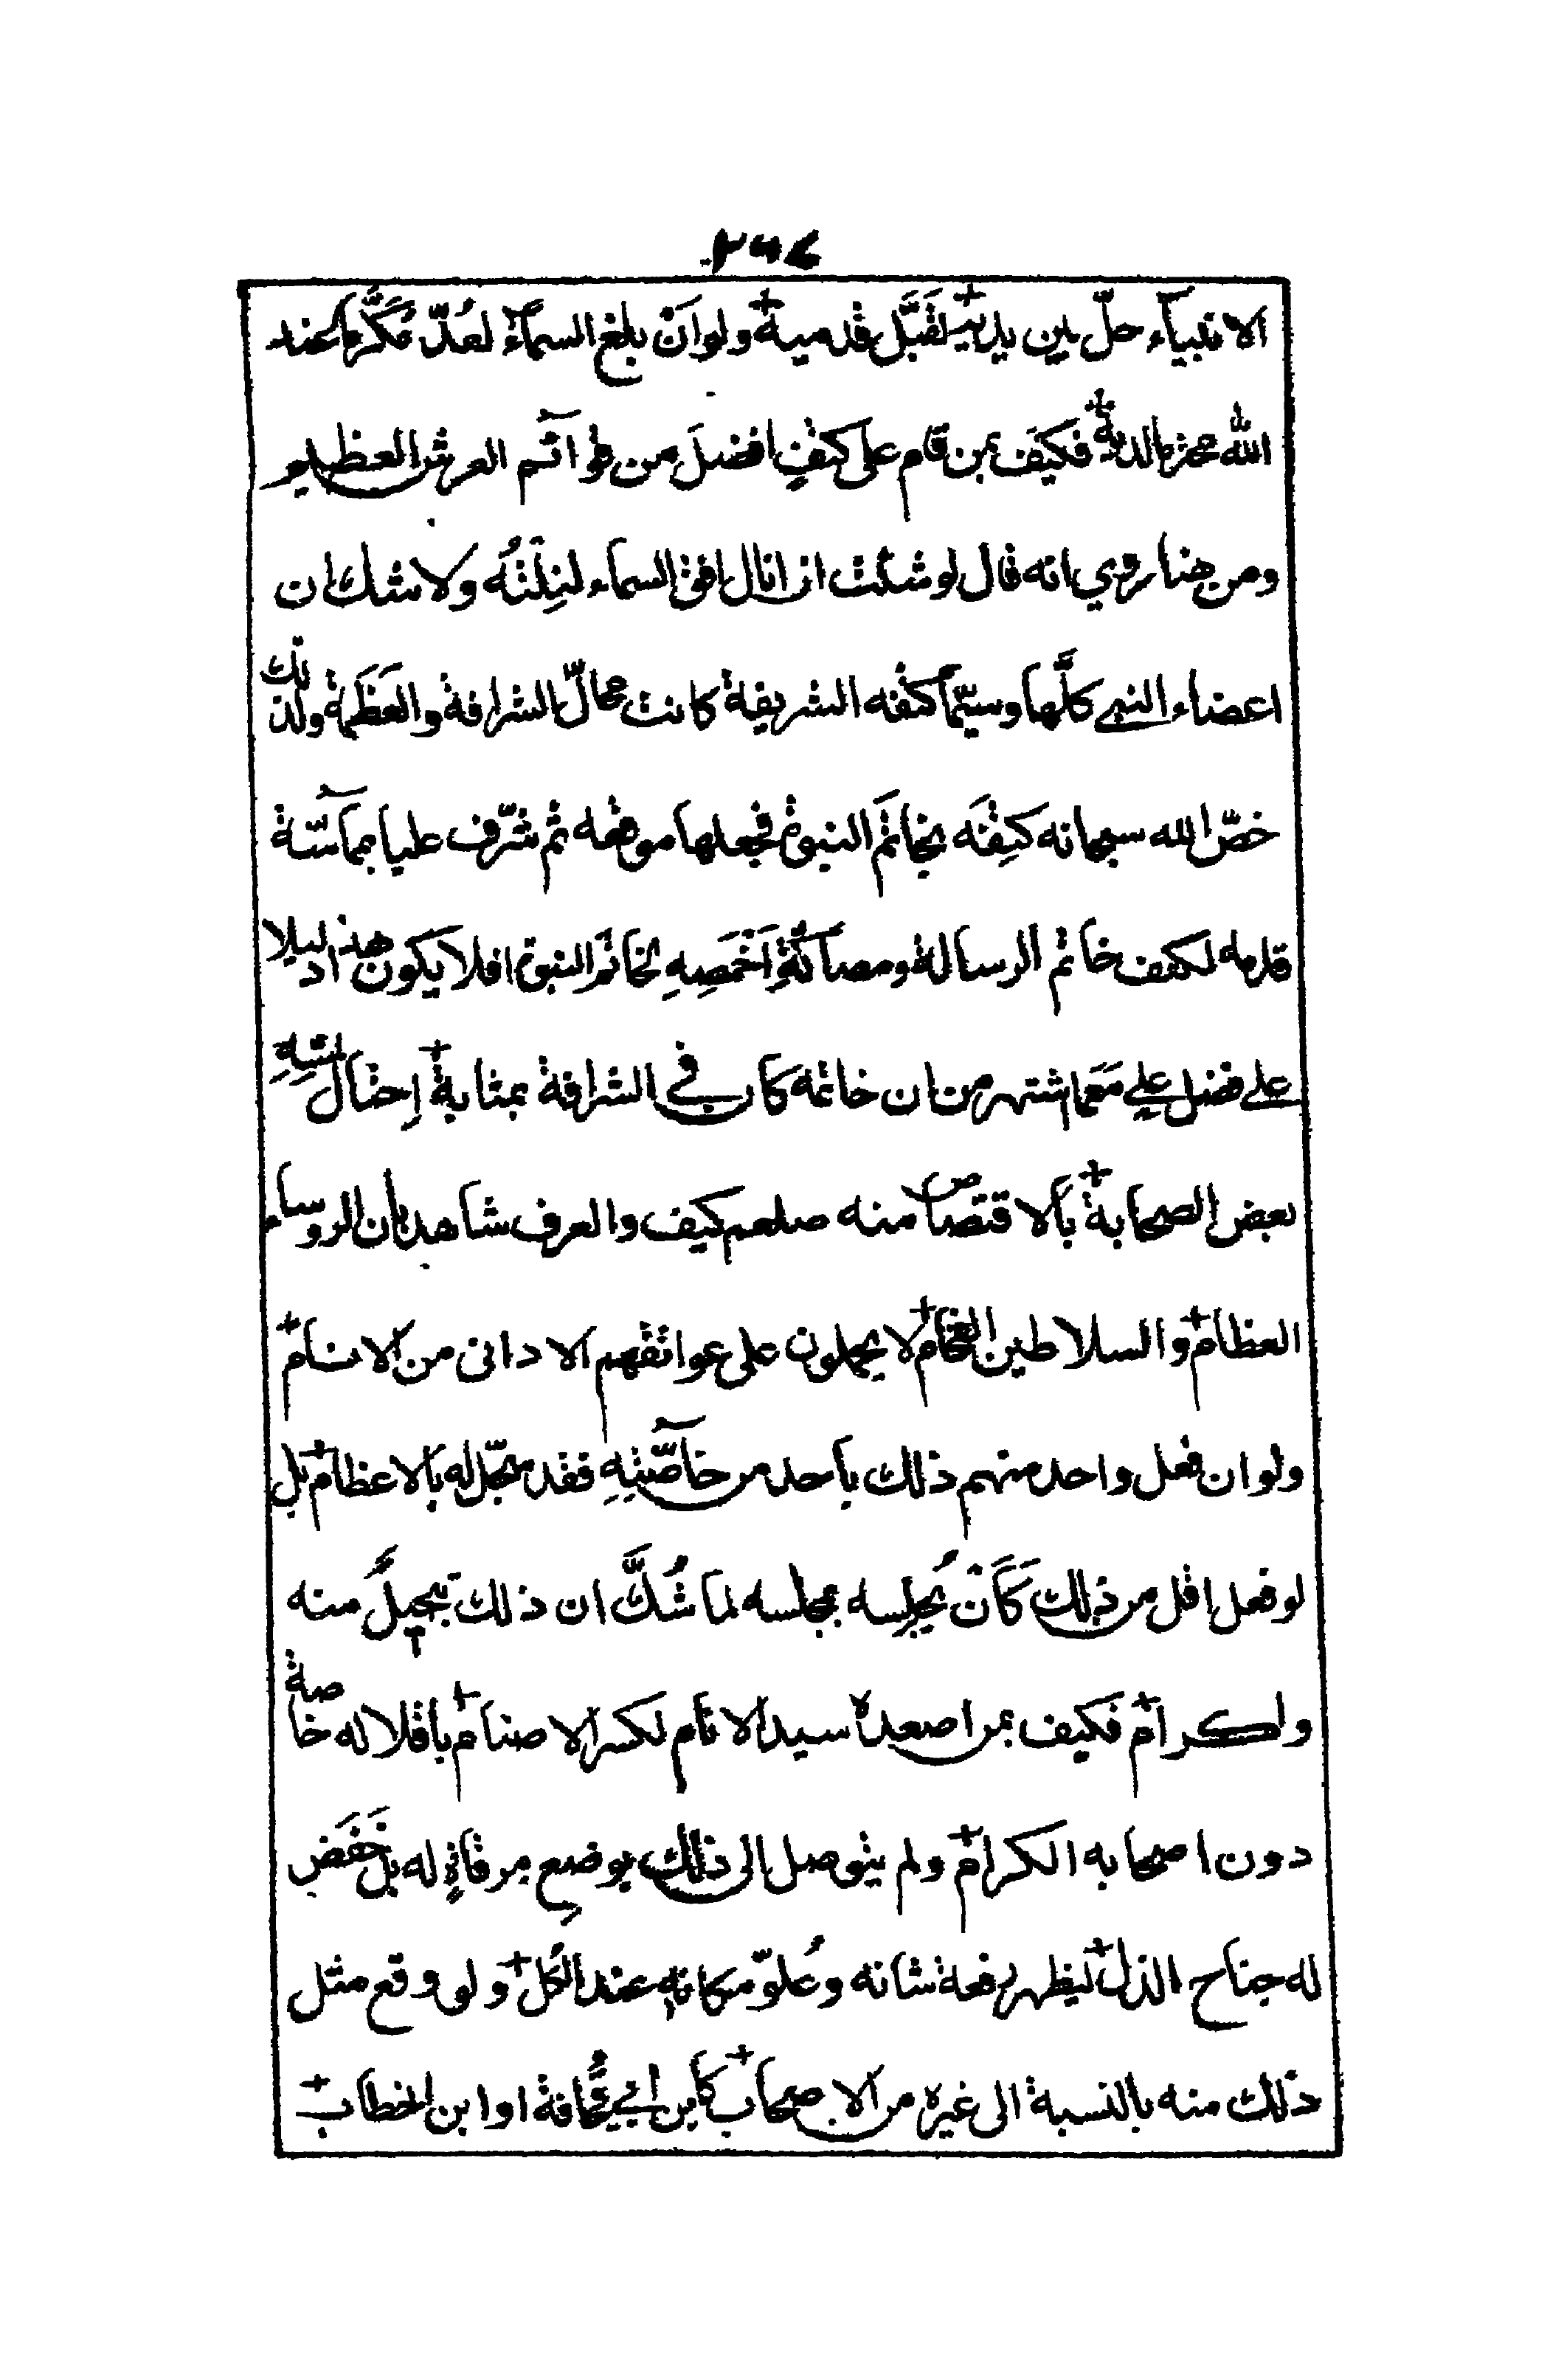 ٣٦٤
الانبياء حلّ بين يديه لقبّل قدميه ولو انّ بلغ السماء لعُدّ مكرّما عند
الله فكيف بمن قام على كتفٍ افضل من قوائم العرش العظيم
ومن هنا روي انه قال لو شئت ان انال افق السماء لنِلتُه ولا شك ان
اعضاء النبي كلّها وسيّما كتفه الشريفة كانت محالّ الشرافة والعَظَمة ولذلك
خصّ الله سبحانه كتِفَه بخاتَم النبوة فجعلها موقعه ثم شرّف عليا بمماسّة
قدمه لكتف خاتم الرسالة ومصاكّةِ اَخمَصِهِ لخاتَم النبوة افلا يكون هذا دليلا
على فضل علي مَعَ ما اشتهر من ان خاتمه كان في الشرافة بمثابة اِحتال لمسّهِ
بعض الصحابة بالاقتصاص منه صلعم كيف والعرف شاهد بان الروساء
العظام والسلاطين الفخام لا يحملون على عواتقهم الاداني من الانام
ولو ان فعل واحد منهم ذلك باحد من خاصّتِهِ فقد سجّل له بالاعظام بل
لو فعل اقل من ذلك كَاَنْ يُجلِسه مجلسه لما شُكَّ ان ذلك تبجيلٌ منه
واكرام فكيف بمن اصعده سيد الانام لكسر الاصنام باقلاله خاصة
دون اصحابه الكرام ولم يتوصل الى ذلك بوضع مرقاةٍ له بل خَفَض
له جناح الذل ليظهر رفعة شانه وعُلوّ مكانه عند الكل ولو وقع مثل
ذلك منه بالنسبة الى غيره من الاصحاب كابن ابي قُحافة او ابن الخطاب